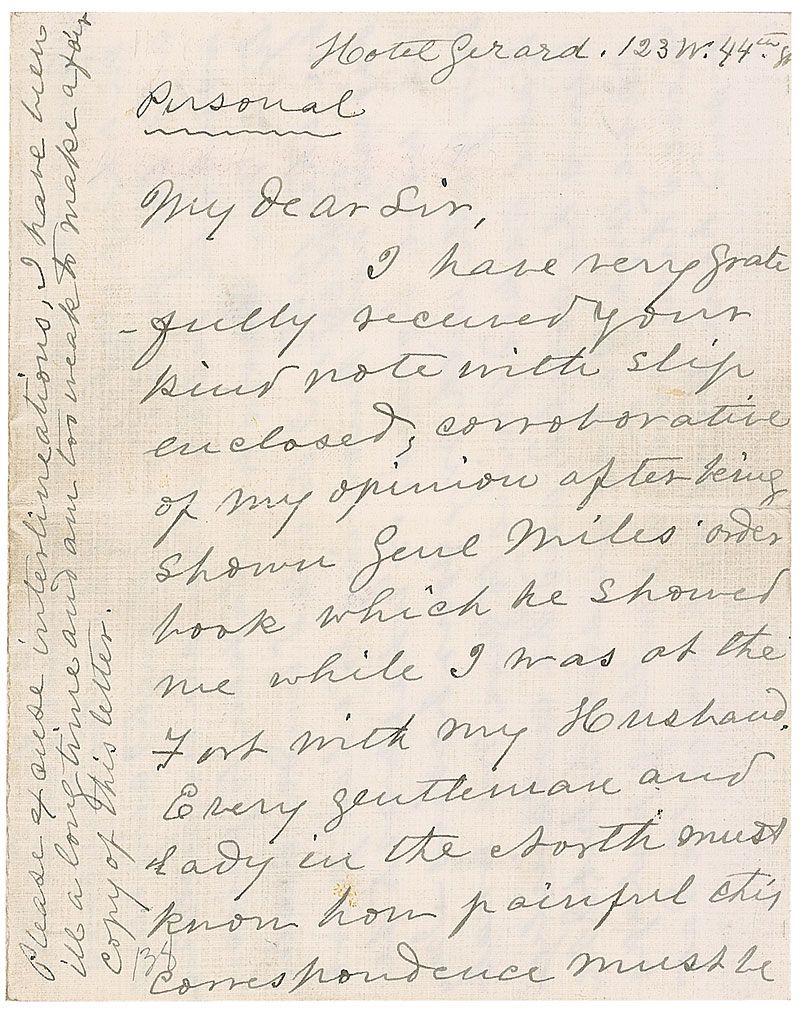 Hotel Gerard. 123 W. 44th St
Personal
My dear Sir,
I have very grate
-fully received your
kind note with slip
enclosed, corroborative
of my opinion after being
shown Genl Miles' order
book which he showed
me while I was at the
Fort with my Husband.
Every gentleman and
Lady in the North must
know how painful this
correspondence must be
Please excuse interlineations, I have been
ill a long time and am too weak to make a fair
copy of this letter.